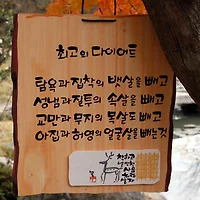 최고의 다이어트
탐욕과 집착의 뱃살을 빼고
성냄과 질투의 속살을 빼고
교만과 무지의 목살도 빼고
아집과 허영의 얼굴살을 빼는것